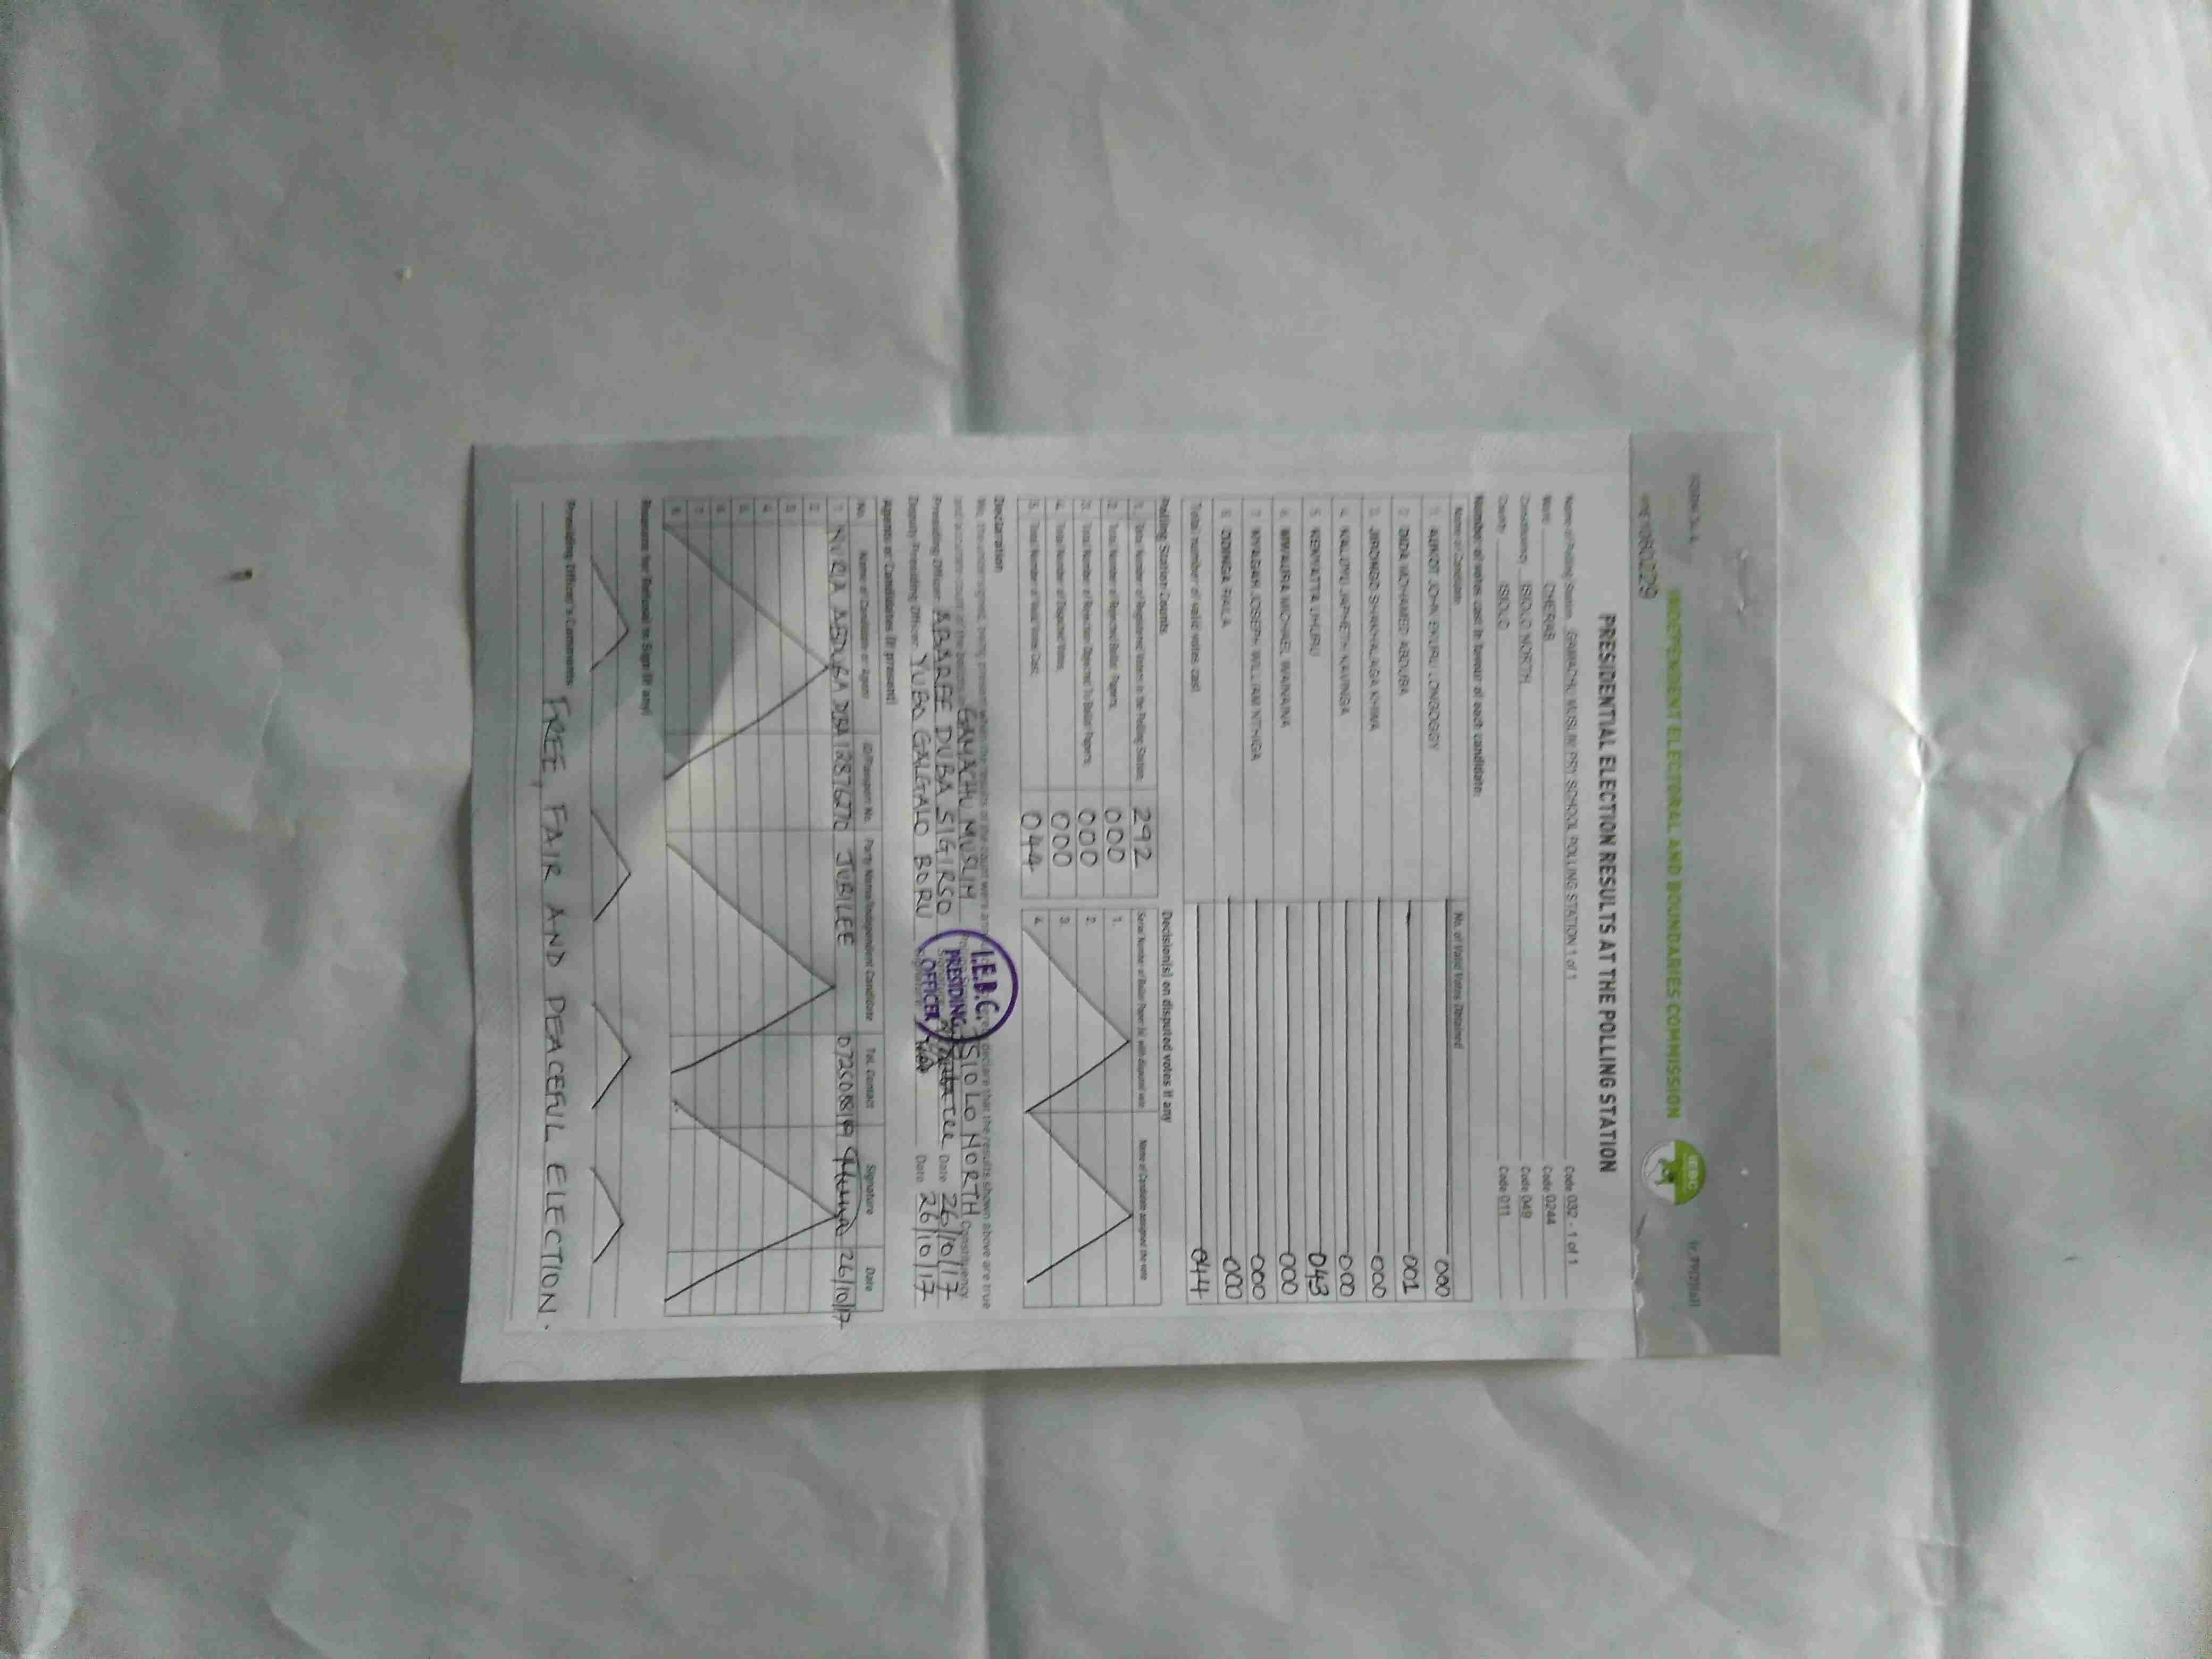 INDEPENDENT ELECTORAL AND BOUNDARIES COMMISSION
IEBC
PRESIDENTIAL ELECTION RESULTS AT THE POLLING STATION
Name of Polling Station GAMACHU MUSLIM PRY SCHOOL POLLING STATION 1 of 1 Code 032 - 1 of 1
Ward CHERAB Code 0244
Constituency ISIOLO NORTH Code 049
County ISIOLO Code 011
Number of votes cast in favour of each candidate:
Name of Candidate No. of Valid Votes Obtained
1. AUKOT JOHN EKURU LONGOGGY 000
2. DIDA MOHAMED ABDUBA 001
3. JIRONGO SHAKHALAGA KHWA 000
4. KALUYU JAPHETH KAVINGA 000
5. KENYATTA UHURU 043
6. MWAURA MICHAEL WAINAINA 000
7. NYAGAH JOSEPH WILLIAM NTHIGA 000
8. ODINGA RAILA 000
Total number of valid votes cast 044
Polling Station Counts Decision(s) on disputed votes if any
1. Total Number of Registered Voters in the Polling Station: 292
2. Total Number of Rejected Ballot Papers: 000
3. Total Number of Rejection Objected To Ballot Papers: 000
4. Total Number of Disputed Votes: 000
5. Total Number of Valid Votes Cast: 044
Serial Number of Ballot Paper (s) with disputed vote Name of Candidate assigned the vote
1.
2.
3.
4.
Declaration
We, the undersigned, being present when the results of the count were declare that the results shown above are true
and accurate count of the ballots GAMACHU MUSLIM ISIOLO NORTH Constituency.
Presiding Officer: ABAREE DUBA SIGIRSO Date 26/10/17
Deputy Presiding Officer: YUBO GALGALO BORU Date 26/10/17
I.E.B.C.
PRESIDING
OFFICER
Agents of Candidates (if present)
No. Name of Candidate or Agent ID/Passport No. Party Name/Independent Candidate Tel. Contact Signature Date
1 NURIA ABDUBA DIBA 12876270 JUBILEE 26/10/17
2
3
4
5
6
7
8
Reasons for Refusal to Sign (if any)
Presiding Officer's Comments: FREE, FAIR AND PEACEFUL ELECTION.